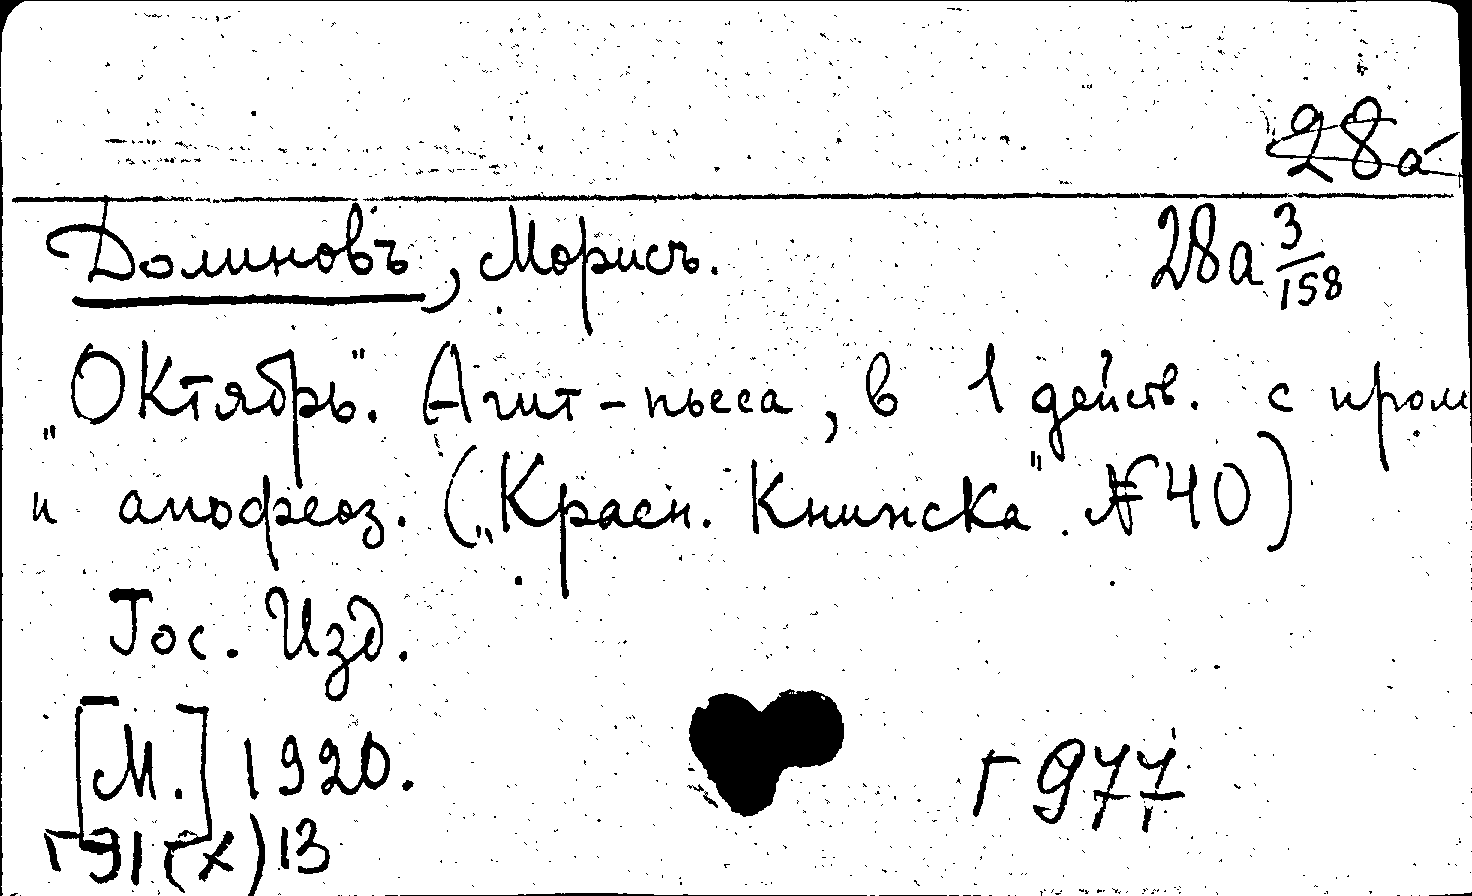 28а
Долиновъ, Морисъ. 28а 3/158
„Октябрь". Агит-пьеса, в 1 действ. с пром
и апофеоз. („Красн. Книжска" № 40)
Гос. Изд.
[М.] 1920. г 977
г 91 (х) 13